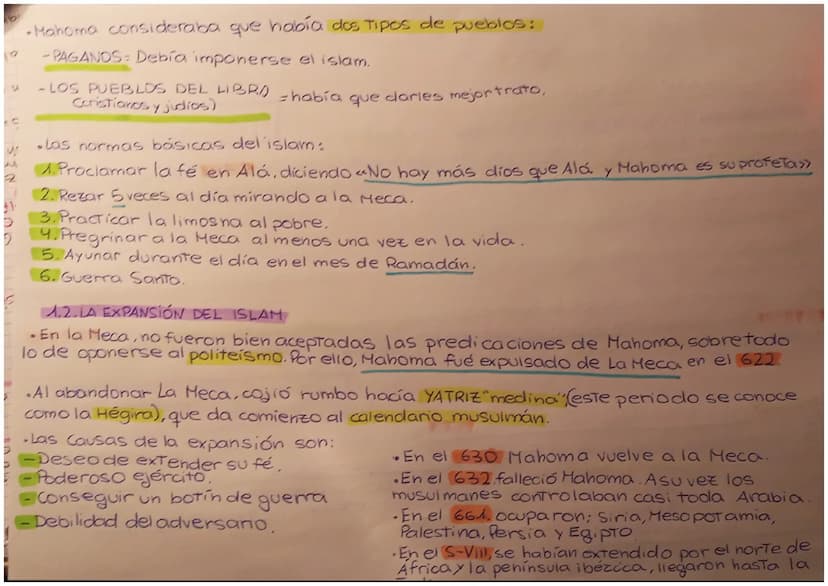 • Mahoma consideraba que había dos TIPOS de pueblos:
- PAGANOS: Debía imponerse el islam.
- LOS PUEBLOS DEL LIBRO = había que darles mejor trato.
(cristianos y judíos)
• Las normas básicas del islam:
1. Proclamar la fé en Alá, diciendo «No hay más dios que Alá y Mahoma es su profeta»
2. Rezar 5 veces al día mirando a la Meca.
3. Practicar la limosna al pobre.
4. Pregrinar a la Meca al menos una vez en la vida.
5. Ayunar durante el día en el mes de Ramadán.
6. Guerra Santa.
1.2. LA EXPANSIÓN DEL ISLAM
• En la Meca, no fueron bien aceptadas las predicaciones de Mahoma, sobretodo
lo de oponerse al politeísmo. Por ello, Mahoma fué expulsado de La Meca en el 622
• Al abandonar La Meca, cojió rumbo hacía YATRIZ "medina" (este periodo se conoce
como la Hégira), que da comienzo al calendario musulmán.
• Las causas de la expansión son:
- Deseo de extender su fé.
- Poderoso ejército.
- Conseguir un botín de guerra
- Debilidad del adversario.
• En el 630 Mahoma vuelve a la Meca.
• En el 632 falleció Mahoma. A su vez los
musulmanes controlaban casi toda Arabia.
• En el 661, ocuparon; Siria, Mesopotamia,
Palestina, Persia y Egipto
• En el S-VIII, se habían extendido por el norte de
África y la península ibérica, llegaron hasta la